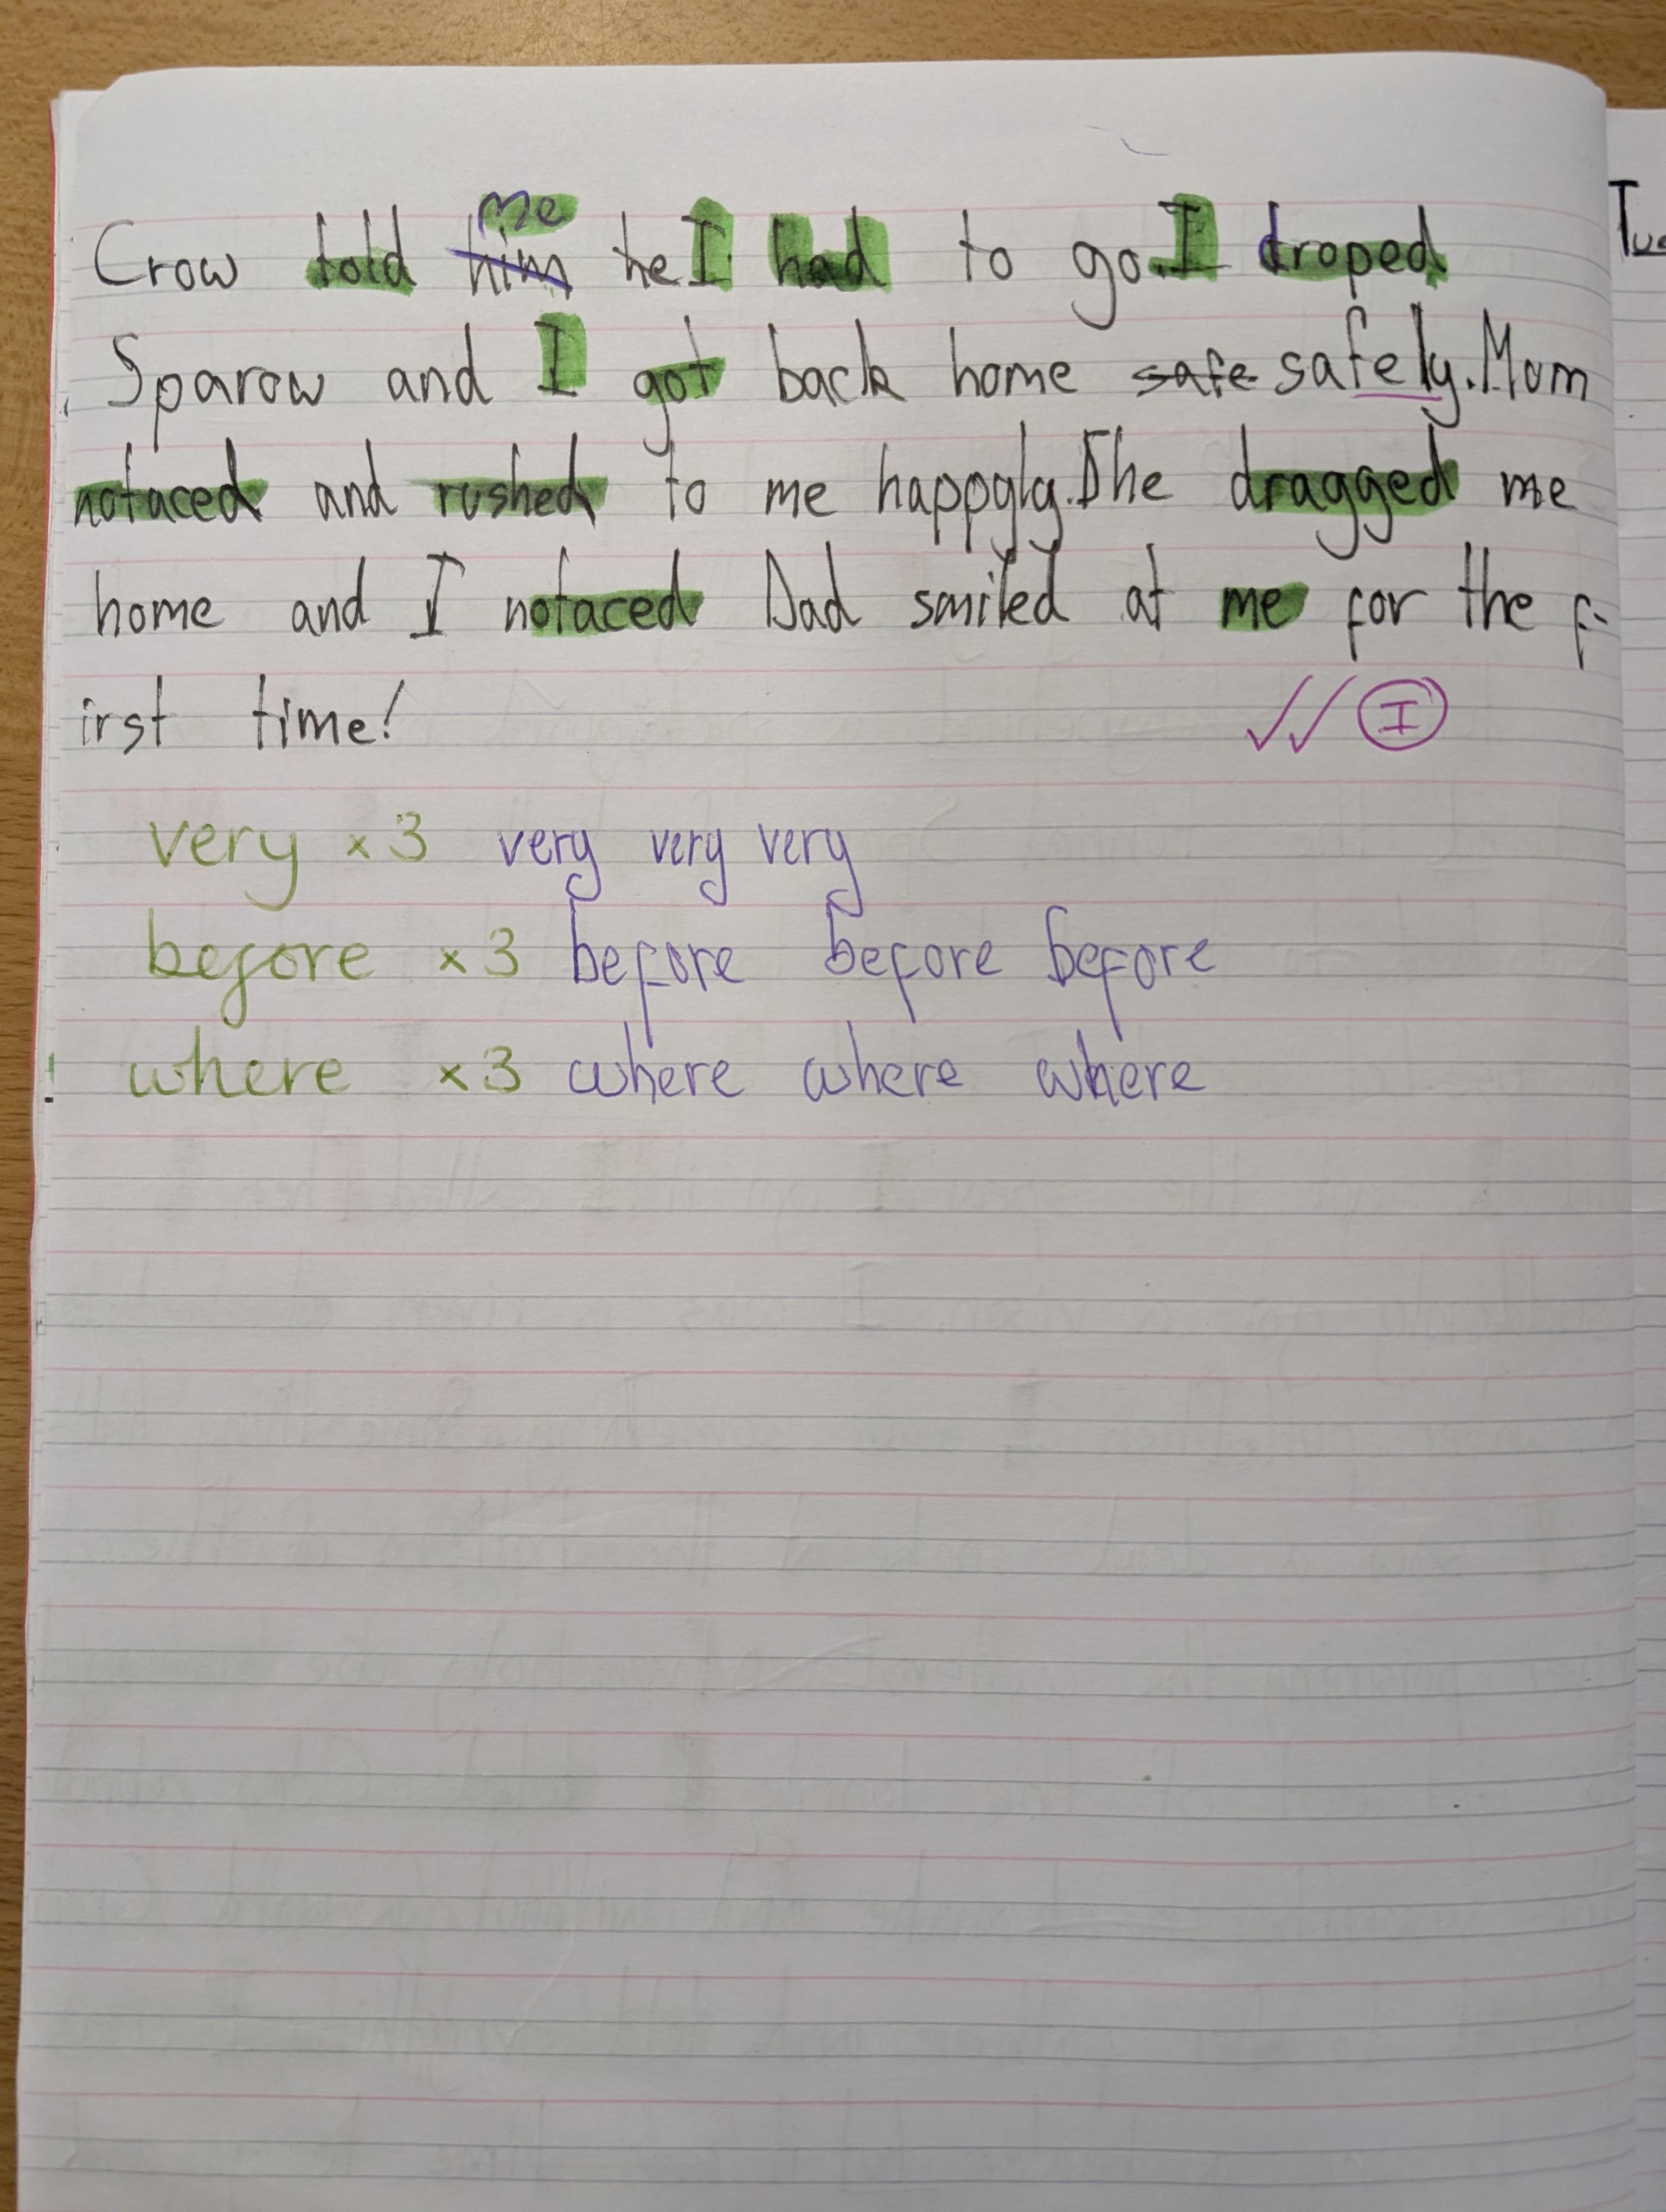 me
Crow told him he I had to go. I droped
Sparow and I got back home safe safely. Mom
notaced and rushed to me happyly. She dragged me
home and I notaced Dad smiled at me for the f-
irst time!
✓✓ I
very ×3 very very very
before ×3 before before before
! where ×3 where where where